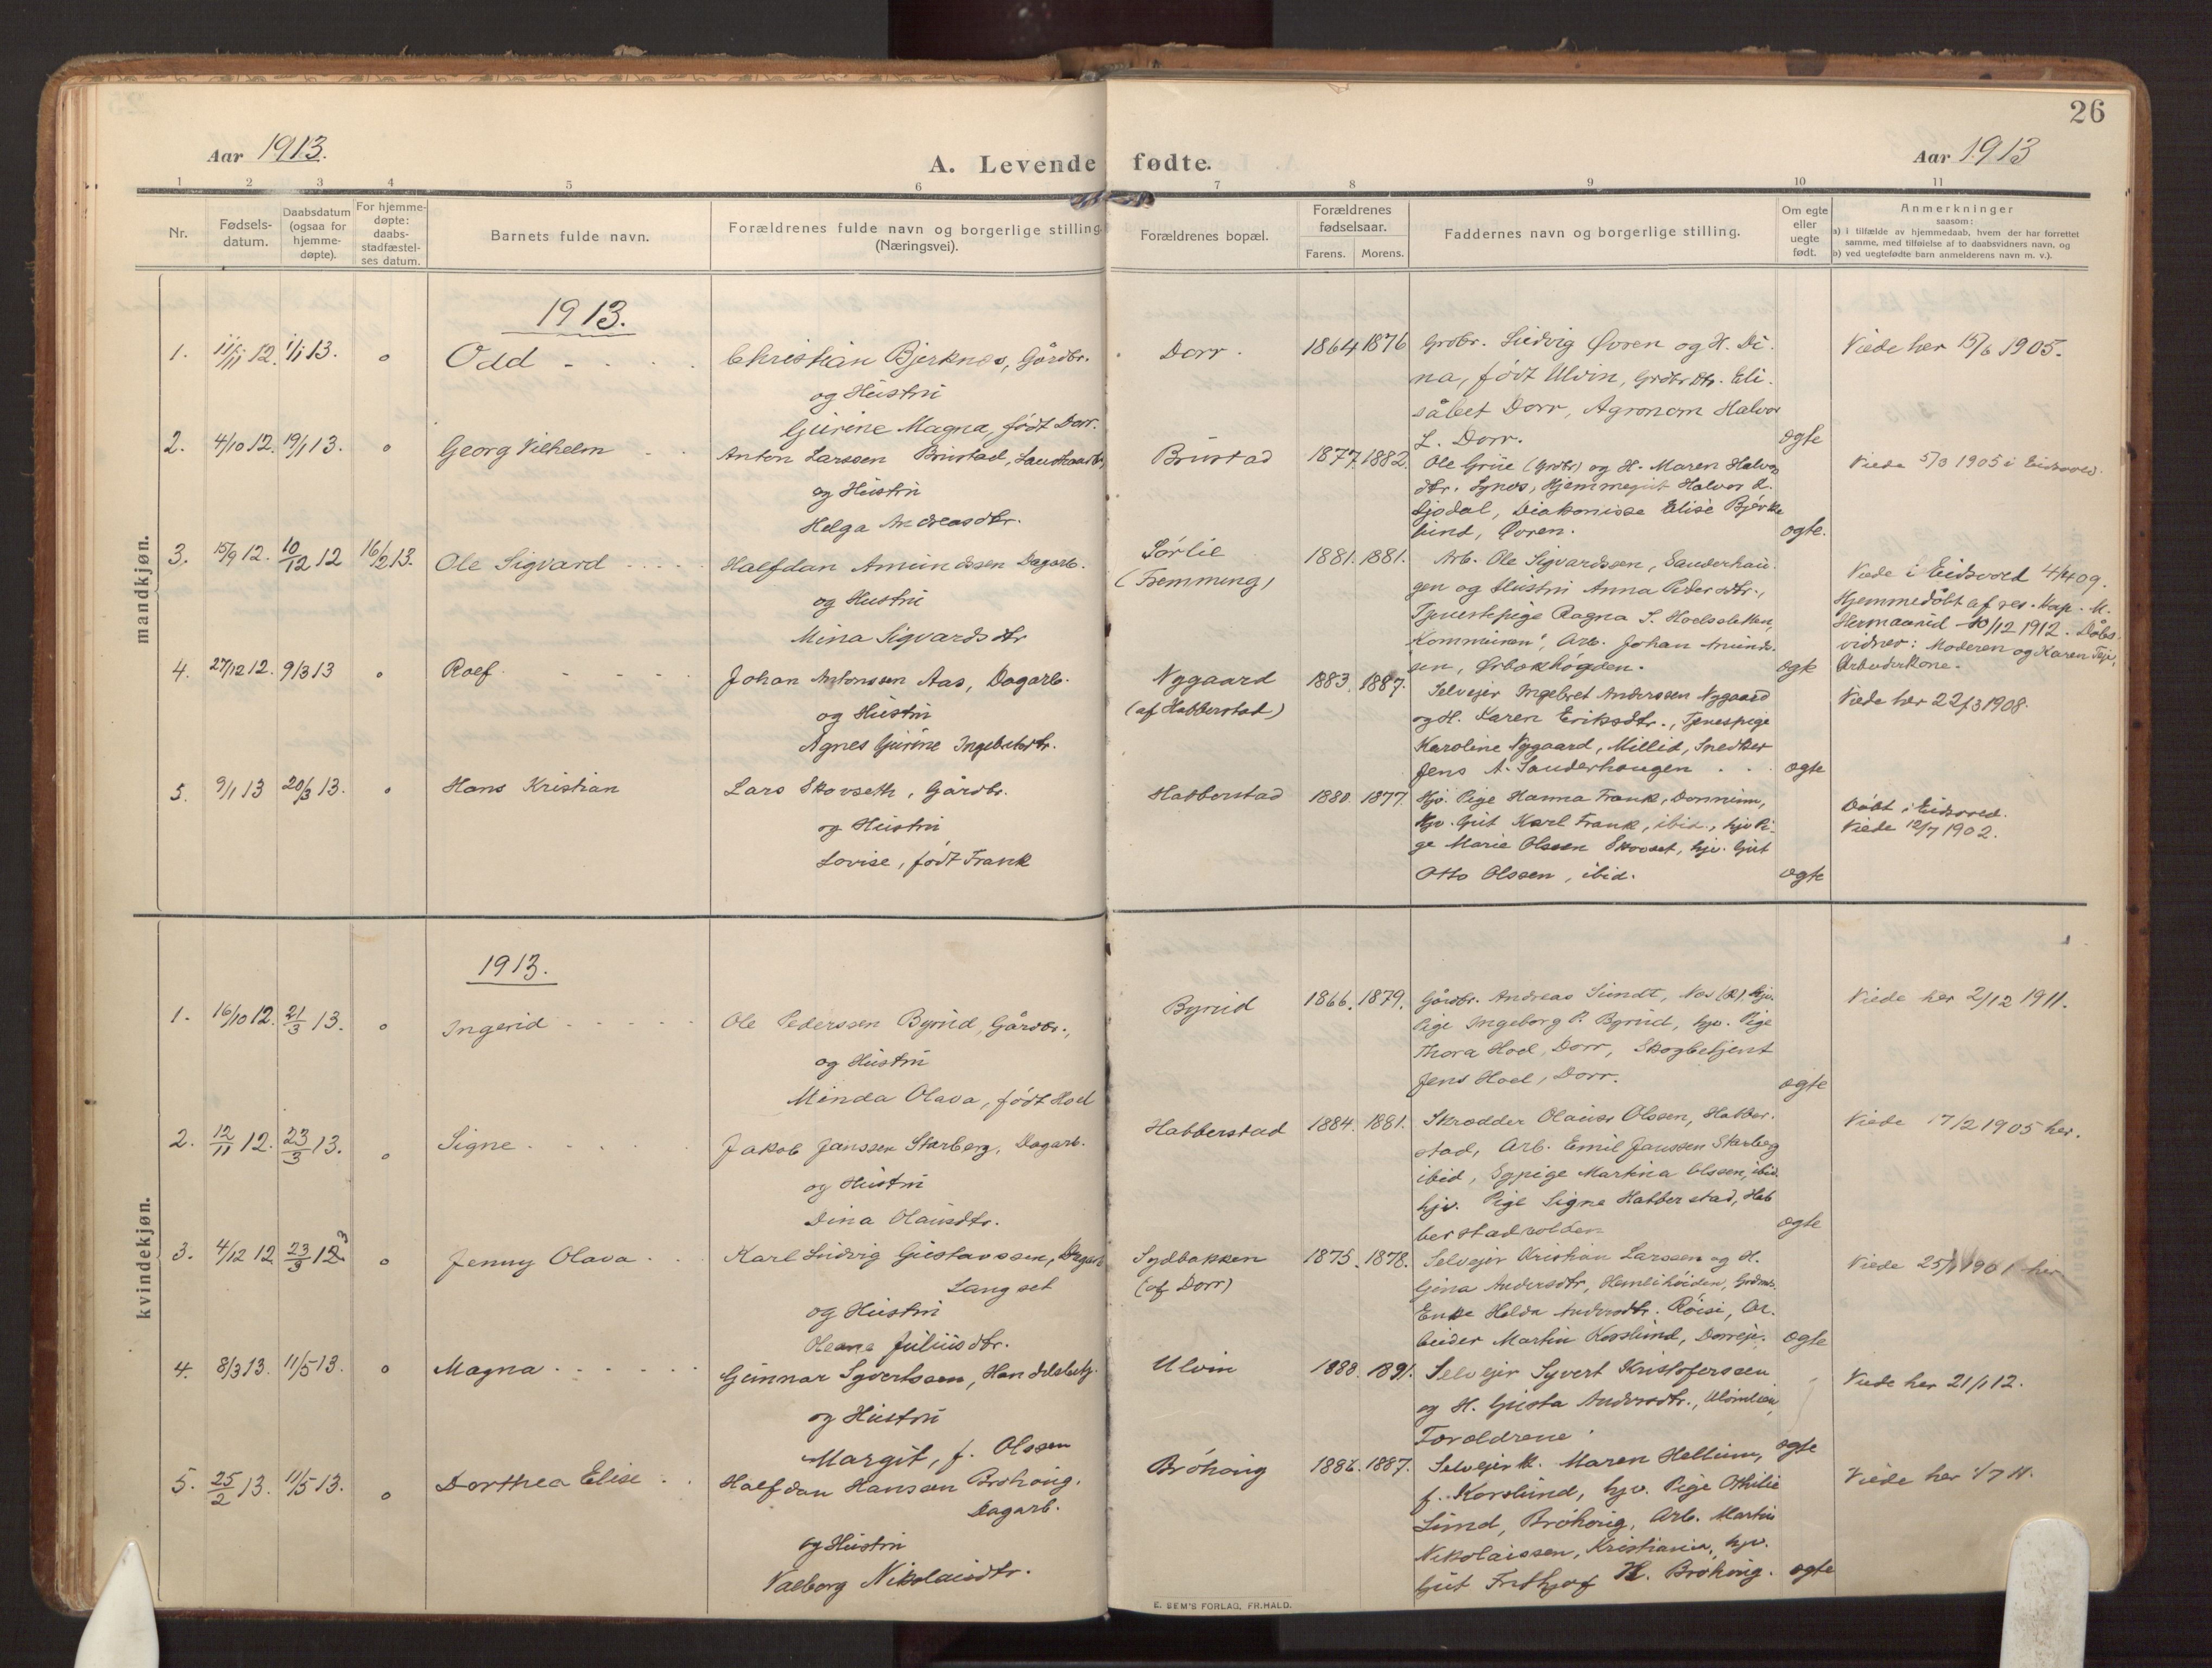 26
Aar 1913.
A. Levende fødte.
Aar 1913
1 2 3 4 5 6 7 8 9 10 11
Nr.
Fødsels-
datum.
Daabsdatum
(ogsaa for
hjemme-
døpte).
For hjemme-
døpte:
daabs-
stadfæstel-
ses datum.
Barnets fulde navn.
Forældrenes fulde navn og borgerlige stilling
(Næringsvei).
Forældrenes bopæl.
Forældrenes
fødselsaar.
Farens. Morens.
Faddernes navn og borgerlige stilling.
Om egte
eller
uegte
født.
Anmerkninger
saasom:
a) i tilfælde av hjemmedaab, hvem der har forrettet
samme, med tilføielse af to daabsvidners navn, og
b) ved uegtefødte barn anmelderens navn m. v.).
mandkjøn.
1913.
1. 11/11 12. 1/1 13. o Odd
Christian Bjerknes, Gårdbr.
og Hustru
Gurine Magna, født Dorr.
Dorr. 1864 1876
Grdbr. Ludvig Øvren og H. Di-
na, født Ulvin, Grdbr.dtr. Eli-
sabet Dorr, Agronom Halvor
L. Dorr.
ægte
Viede her 15/6 1905.
2. 4/10 12. 19/1 13. o Georg Vilhelm
Anton Larssen Brustad,
og Hustru
Helga Andreasdtr.
Brustad 1877. 1882.
Ole Grue (Grdbr) og H. Maren Halvor
dtr. Synes, Hjemmegut Halvor
Diakonisse Elise Bjørke
lund, Øvren.
ægte.
Viede 5/3 1905 i Eidsvold.
3. 15/9 12. 10/12 12 16/2 13. Ole Sigvard
Halfdan Amundssen Dagarb.
og Hustru
Mina Sigvardsdtr
Sørlie
(Fremming)
1881. 1881.
Arb. Ole Sigvardssen, Sanderhau-
gen og Hustru Anna Pedersdtr.,
Tjenestepige Ragna S. Hoelsletten,
Arb. Johan Amunds-
sen, Ørbækhøgden.
ægte
Viede i Eidsvold 4/4 09.
Hjemmedøbt af res. Kap. M.
10/12 1912. Dåbs-
vidner: Moderen og Karen
Arbeiderkone.
4. 27/12 12. 9/3 13 o Rolf
Johan Antonssen Aas, Dagarb.
og Hustru
Agnes Gurine Ingebretsdtr.
Nygaard
(af Habberstad)
1883. 1887.
Selvejer Ingebret Anderssen Nygaard
og H. Karen Eriksdtr., Tjenespige
Karoline Nygaard, Millid, Snedker
Jens A. Sanderhaugen
ægte
Viede her 22/3 1908.
5. 9/1 13 20/3 13. o Hans Kristian
Lars Skovseth, Gårdbr.
og Hustru
Lovise, født Frank
Habberstad 1880. 1877.
Hjv. Pige Hanna Frank,
Hjv. Gut Karl Frank, ibid., hjv Pi-
ge Marie Olssen Skovset, hjv. Gut
Otto Olssen, ibid.
ægte
Døbt i Eidsvold.
Viede 12/7 1902.
kvindekjøn.
1913.
1. 16/10 12. 21/3 13. o Ingerid
Ole Pederssen Byrud, Gårdbr.,
og Hustru
Minda Olava, født Hoel
Byrud 1866. 1879.
Gårdbr. Andreas Sundt, Nes (R), hjv.
Pige Ingeborg P. Byrud, hjv. Pige
Thora Hoel, Dorr, Skogbetjent
Jens Hoel, Dorr.
ægte
Viede her 2/12 1911.
2. 12/11 12. 23/3 13. o Signe
Jakob Janssen Skarberg, Dagarb.
og Hustru
Dina Olausdtr.
Habberstad 1884. 1881.
Skrædder Olaus Olssen, Habber-
stad, Arb. Emil Janssen Skarberg
ibid, Sypige Martina Olssen, ibid.
hjv. Pige Signe Habberstad, Hab
berstadvolden
ægte
Viede 17/2 1905 her.
3. 4/12 12 23/3 13 o Jenny Olava
Karl Ludvig Gustavssen, Dagarb
Langset
og Hustru
Oleane Juliusdtr.
Sydbakken
(af Dorr)
1875. 1878.
Selvejer Kristian Larssen og H.
Gina Andersdtr, Hemlihøiden,
Enke Helda Andersdtr. Røisi, Ar-
beider Martin Korslund, Dorreje.
ægte
Viede 1901 her
4. 8/3 13. 11/5 13. o Magna
Gunnar Syvertssen, Handelsbetj.
og Hustru
Margit, f. Olssen
Ulvin 1888. 1891.
Selvejer Syvert Kristoferssen
og H. Gusta Andersdtr.,
Forældrene.
ægte
Viede her 21/1 12.
5. 25/2 13. 11/5 13. o Dorthea Elise
Halfdan Hanssen Brøhaug.
Dagarb.
og Hustru
Valborg Nikolaisdtr.
Brøhaug 1886. 1887.
Selvejerk. Maren Hellum,
f. Korslund, hjv. Pige Othilie
Lund, Brøhaug, Arb. Martin
Nikolaissen, Kristiania, hjv.
Gut Frithjof H. Brøhaug.
ægte
Viede her 1/7 11.
E. SEM'S FORLAG, FR.HALD.